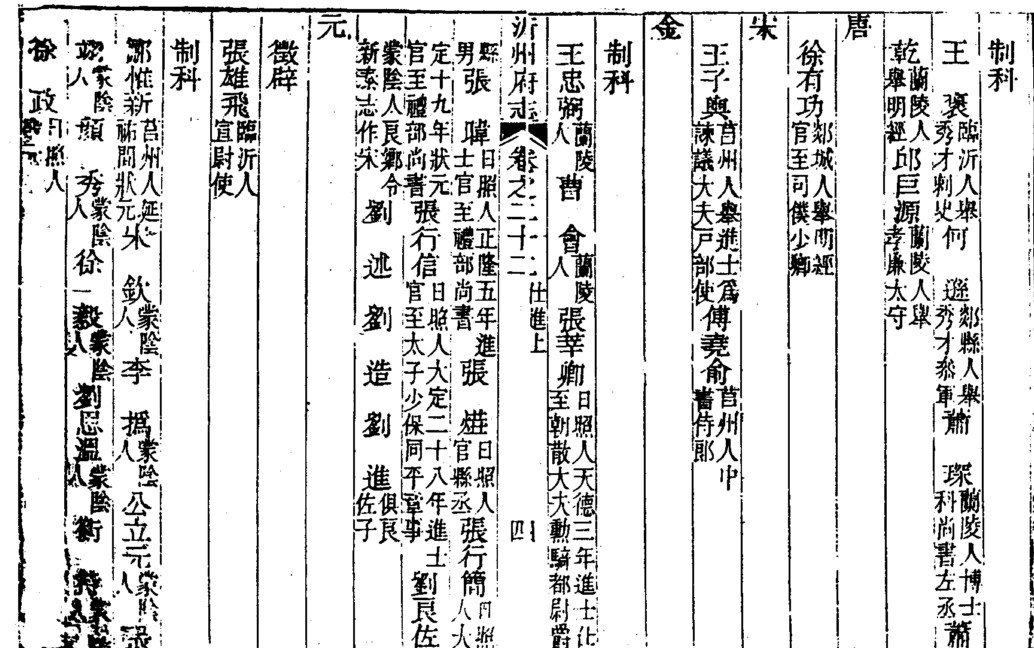 制科
王襃臨沂人舉秀才刺史何遜郯縣人舉秀才叅軍蕭琛蘭陵人博士科尚書左丞蕭
乾蘭陵人舉明經邱巨源蘭陵人舉孝廉太守
唐
徐有功郯城人舉明經官至司僕少卿
宋
王子與莒州人舉進士爲諫議大夫戸部使傅堯俞莒州人中書侍郎
金
制科
王忠弼蘭陵人曹會蘭陵人張莘卿日照人天德三年進士仕至朝散大夫勳騎都尉爵
沂州府志卷之二十二仕進上四
縣男張暐日照人正隆五年進士官至禮部尚書張日照人官縣丞張行簡日照人大
定十九年狀元官至禮部尚書張行信日照人大定二十八年進士官至太子少保同平章事劉良佐
蒙陰人良鄉令新泰志作宋劉述劉造劉進俱良佐子
元
徵辟
張雄飛臨沂人宣尉使
制科
惟新莒州人延祐間狀元朱欽蒙陰人李撝蒙陰人公立元蒙陰人
蒙陰人顏秀蒙陰人徐毅蒙陰人劉思溫蒙陰人衛蒙陰
徐政日照人